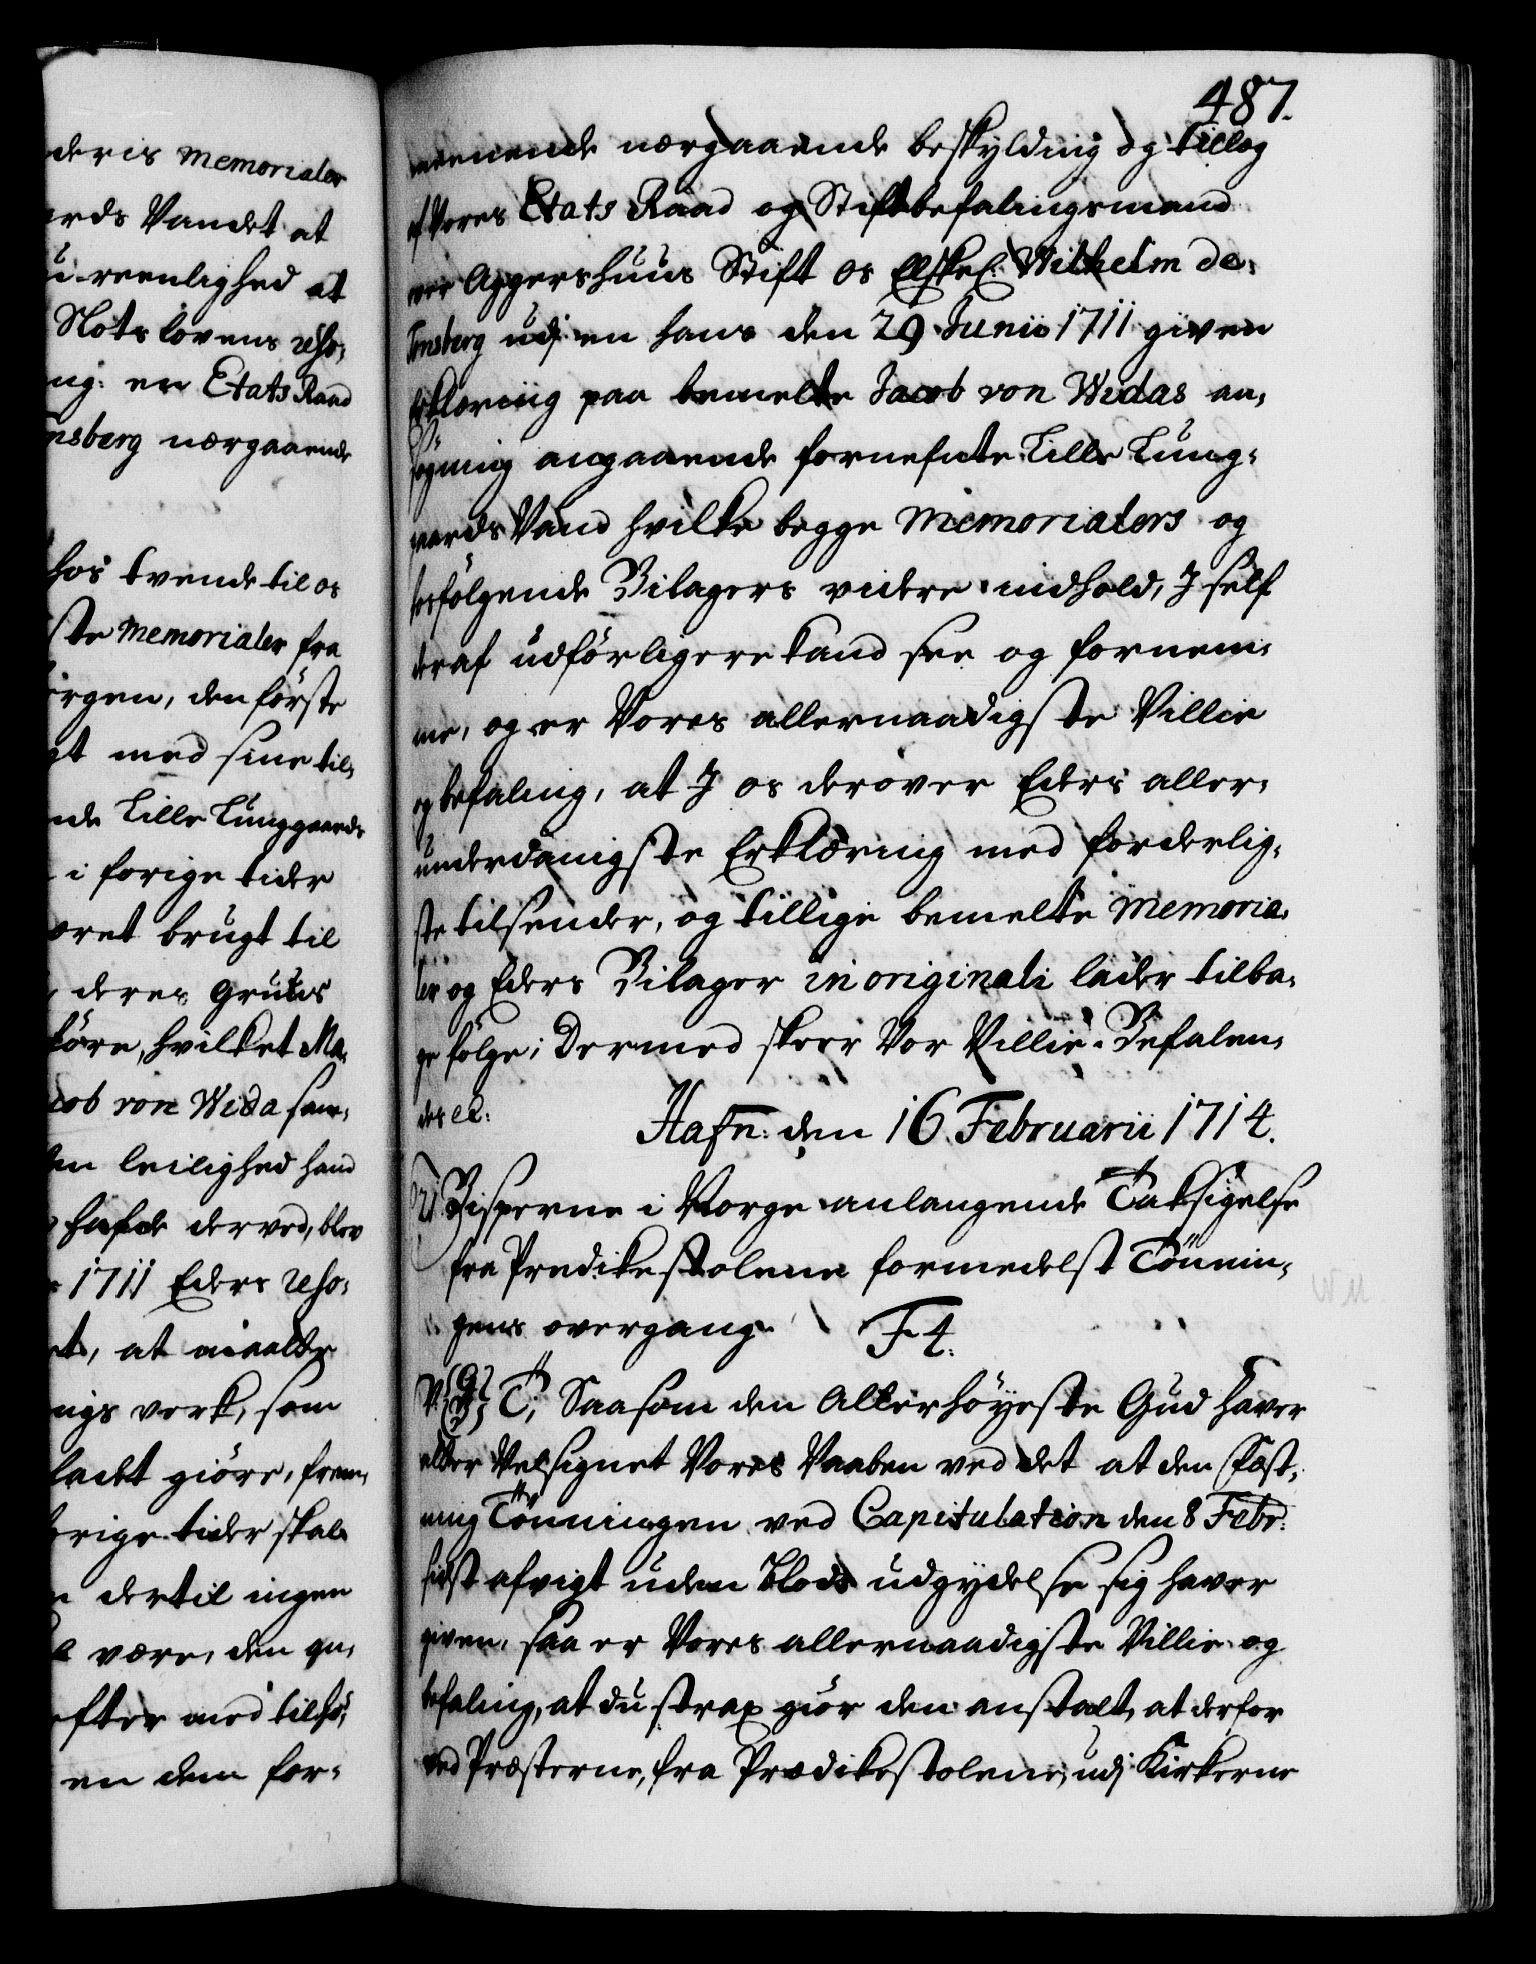 deris Memorialer
Vandet at
reenlighed at
Slots lovens
en Etats Raad
nærgaaende
hos tvende til os
Memorialer fra
den förste
med sine til,
Lille Lunggaards
i forige tider
været brugt til
deres Gruus
kiöre, hvilket Ma,
von Wida
leilighed hand
hafde derved, blev
1711 Eders
at
verk, som
ladet giöre,
tider skal
dertil ingen
være, den
efter med
en dem for,
487.
nærgaaende beskylding og tillæg
af Vores Etats Raad og Stiftbefalingsmand
over Aggershuus Stift os Elskel: Wilhelm de
Tonsberg udj en hans den 29 Junii 1711 given
Erklæring paa bemelte Jacob von Widas an,
sögning angaaende fornefnte Lille Lung,
aards Vand hvilke begge Memorialers og
hosfölgende Bilagers videre indhold, I self
deraf udförligere kand see og fornem,
me, og er Vores allernaadigste Villie
og befaling, at I os derover Eders aller,
underdanigste Erklæring med forderlig,
ste tilsender, og tillige bemelte Memoria,
ler og Eders Bilager in originali lader tilba,
ge fölge; Dermed skeer Vor Villie. Befalen,
des etc:
Hafn: den 16 Februarii 1714.
Bisperne i Norge anlangende Taksigelse
fra Predikestolene formedelst Tönnin,
gens overgang. F 4.
T, Saasom den Allerhöyeste Gud haver
Velsignet Vores Vaaben ved det at den Fæst,
ning Tönningen ved Capitulation den 8 Febr:
sidst afvigt uden blods udgydelse sig haver
given, saa er Vores allernaadigste Villie og
befaling, at du strax giör den anstalt, at derfor
ved Præsterne, fra Prædikestolene, udj Kirkerne